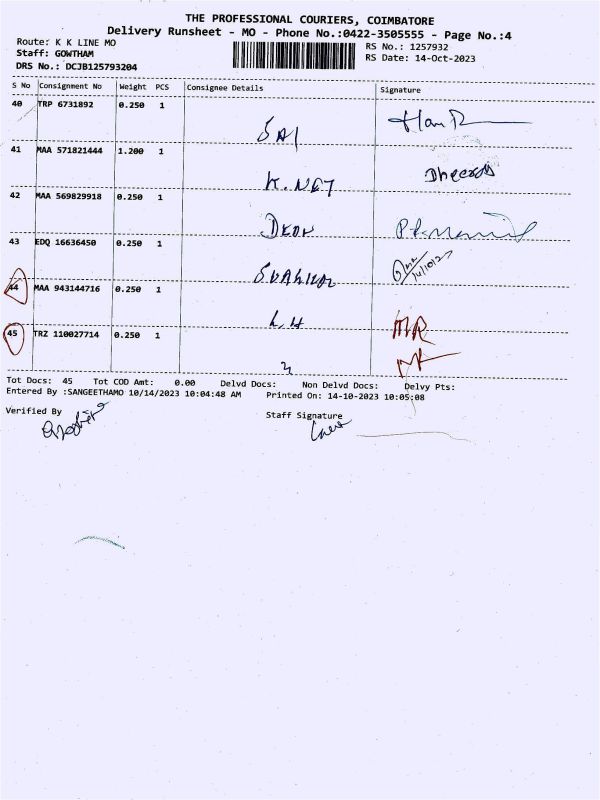 THE PROFESSIONAL COURIERS, COIMBATORE
Delivery Runsheet - MO - Phone No.:0422-3505555 - Page No.:4
Route: K K LINE MO
RS No.: 1257932
Staff: GOWTHAM
RS Date: 14-Oct-2023
DRS No.: DCJB125793204
S No Consignment No Weight PCS Consignee Details Signature
40 TRP 6731892 0.250 1
SAI
41 MAA 571821444 1.200 1
K. NET
42 MAA 569829918 0.250 1
43 EDQ 16636450 0.250 1
44 MAA 943144716 0.250 1
L.H MR
45 TRZ 110027714 0.250 1
Tot Docs: 45 Tot COD Amt: 0.00 Delvd Docs: Non Delvd Docs: Delvy Pts:
Entered By :SANGEETHAMO 10/14/2023 10:04:48 AM Printed On: 14-10-2023 10:05:08
Verified By
Staff Signature